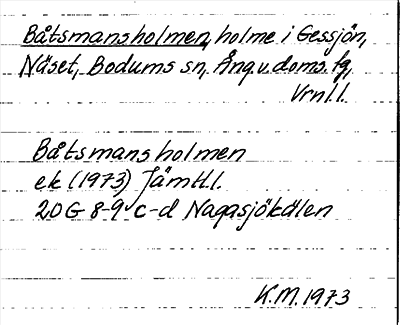 Båtsmansholmen, holme i Gessjön,
Näset, Bodums sn, Ång.v. doms. fg,
Vrnl.l.
Båtsmansholmen
ek (1973) Jämtl.l.
20G 8-9 c-d Nagasjökälen
K.M. 1973